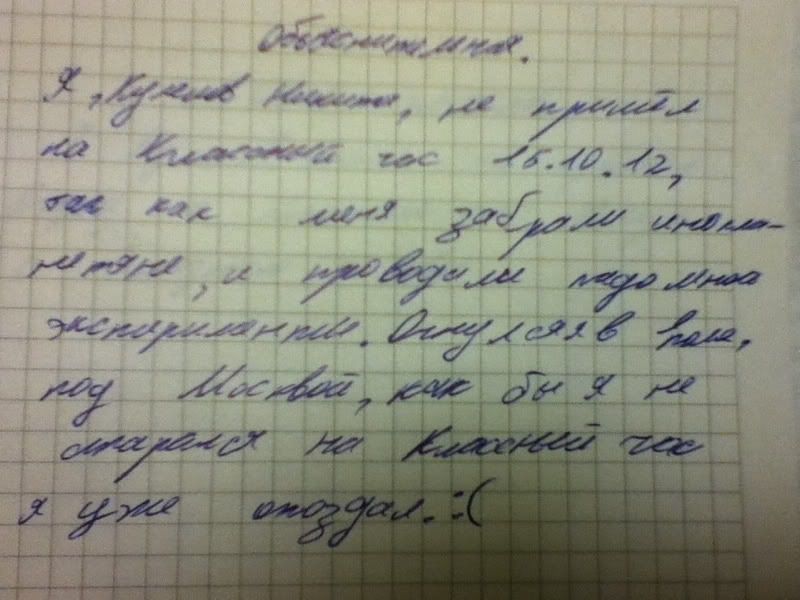 Объяснительная.
Я, Никита, не пришёл
на Классный час 15.10.12,
так как меня забрали инопла-
нетяне, и проводили надомной
эксперименты. Очнулся я в поле,
под Москвой, как бы я не
старался на Классный час
я уже опоздал. :(